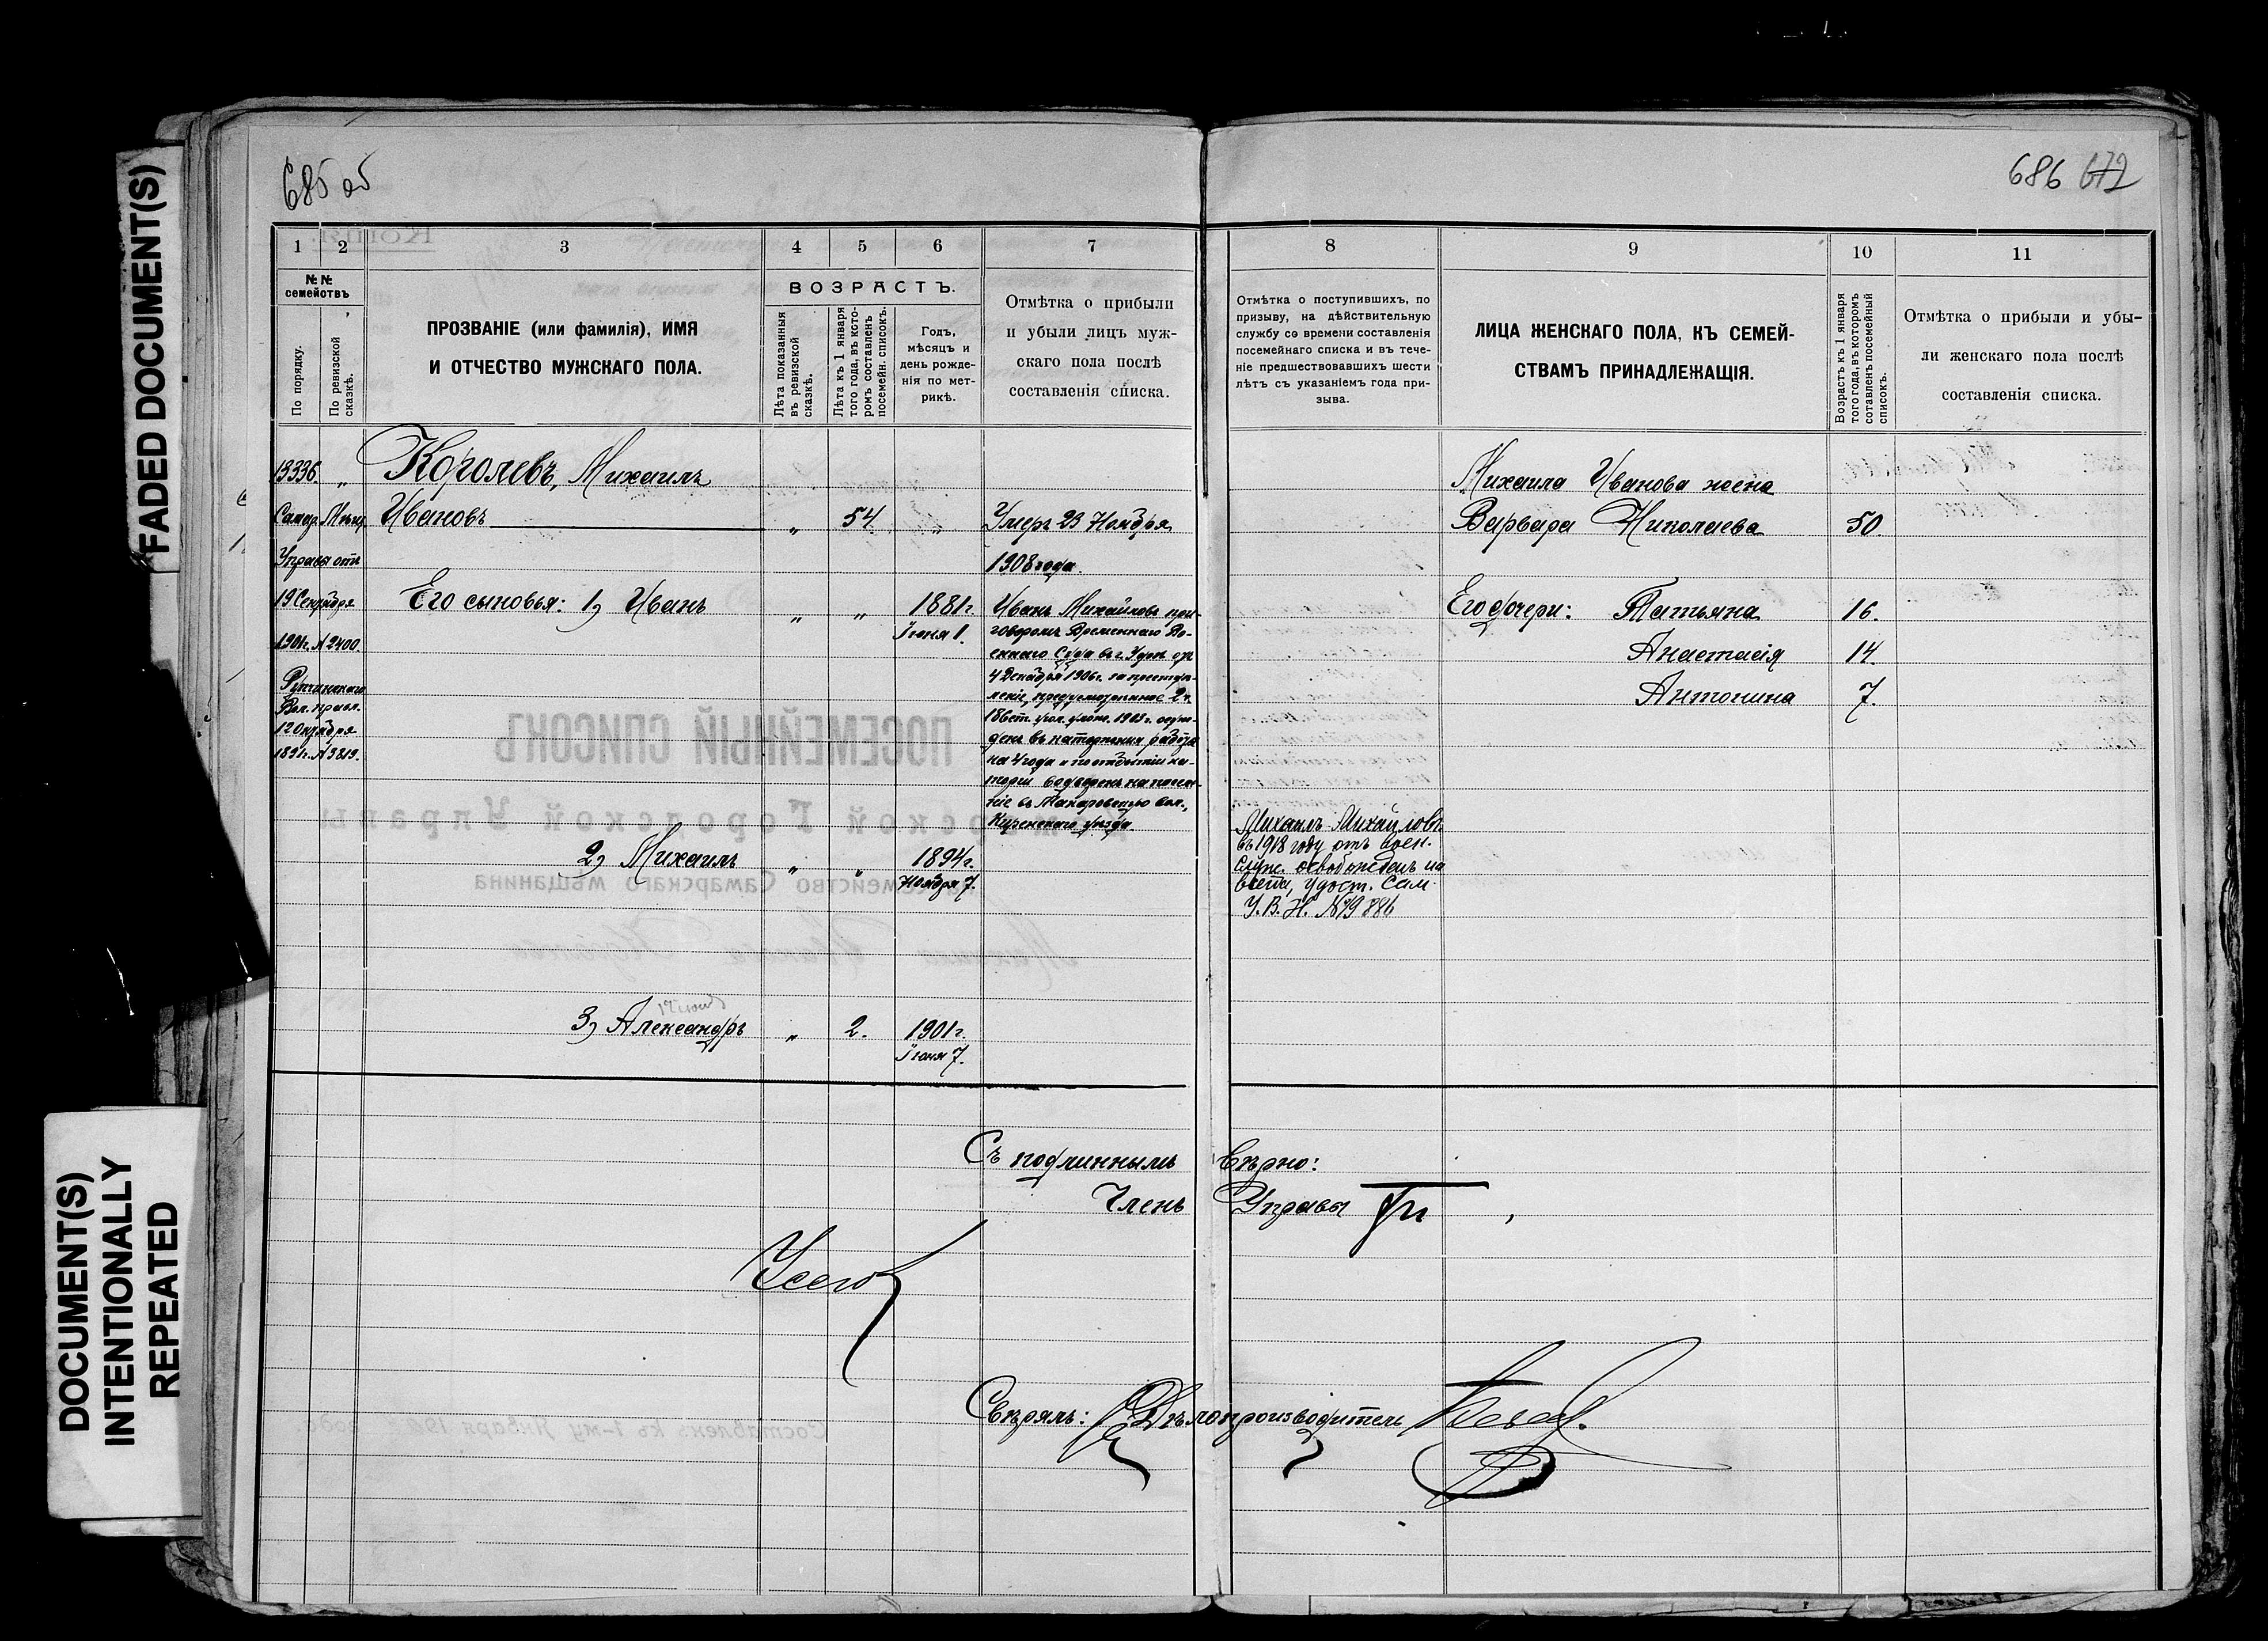 FADED DOCUMENT(S)
DOCUMENT(S)
INTENTIONALLY
REPEATED
685 об
1 2 3 4 5 6 7
№№
семействъ
По порядку.
По ревизской
сказкѣ.
ПРОЗВАНІЕ (или фамилія), ИМЯ
И ОТЧЕСТВО МУЖСКАГО ПОЛА.
ВОЗРАСТЪ.
Лѣта показанныя
въ ревизской
сказкѣ.
Лѣта къ 1 января
того года, въ кото-
ромъ составленъ
посемейн. списокъ.
Годъ,
мѣсяцъ и
день рожде-
нія по мет-
рикѣ.
Отмѣтка о прибыли
и убыли лицъ муж-
скаго пола послѣ
составленія списка.
13336. „
Самар. Мѣщ.
Управы отъ
19 Сентября
1901г. № 2400.
Вол. правл.
12 Октября
1891г. № 3819.
Королевъ, Михаилъ
Ивановъ „ 54 „
Умеръ 23 Ноября
1908 года.
Его сыновья: 1) Иванъ „ „ 1881г.
Іюня 1.
Иванъ Михайловъ при-
говоромъ Временнаго Во-
еннаго Суда въ г. Уфѣ отъ
4 Декабря 1906г. за преступ-
леніе, предусмотрѣнное 2 ч.
126 ст. угол. улож. 1903г. осуж-
денъ въ каторжныя работы
на 4 года и по отбытіи ка-
торги водворенъ на поселе-
ніе въ Макаровскую вол.,
Киренскаго уѣзда.
2) Михаилъ „ „ 1894г.
Ноября 7.
3) Александръ „ 2. 1901г.
Іюня 7.
686 672
8 9 10 11
Отмѣтка о поступившихъ, по
призыву, на дѣйствительную
службу со времени составленія
посемейнаго списка и въ тече-
ніе предшествовавшихъ шести
лѣтъ съ указаніемъ года при-
зыва.
ЛИЦА ЖЕНСКАГО ПОЛА, КЪ СЕМЕЙ-
СТВАМЪ ПРИНАДЛЕЖАЩІЯ.
Возрастъ къ 1 января
того года, въ которомъ
составленъ посемейный
списокъ.
Отмѣтка о прибыли и убы-
ли женскаго пола послѣ
составленія списка.
Михаила Иванова жена
Варвара Николаева 50.
Его дочери: Татьяна 16.
Анастасія 14.
Антонина 7.
Михаилъ Михайловъ
въ 1918 году отъ воен.
служ. освобожденъ на
всегда, удост. Сам.
У. В. Н. № 19886
Съ подлиннымъ вѣрно:
Членъ Управы
Свѣрялъ: Дѣлопроизводитель
ПОСЕМЕЙНЫЙ СПИСОКЪ
Городской Управы
семейство Самарскаго мѣщанина
Составленъ къ 1-му Января 190